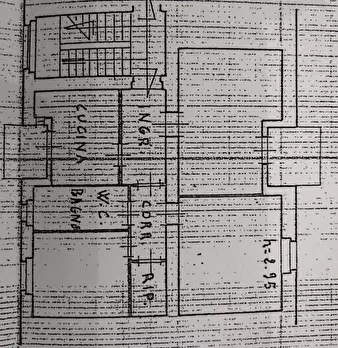 CUCINA
INGR.
W.C.
BAGNO
CORR.
RIP.
h=2.95